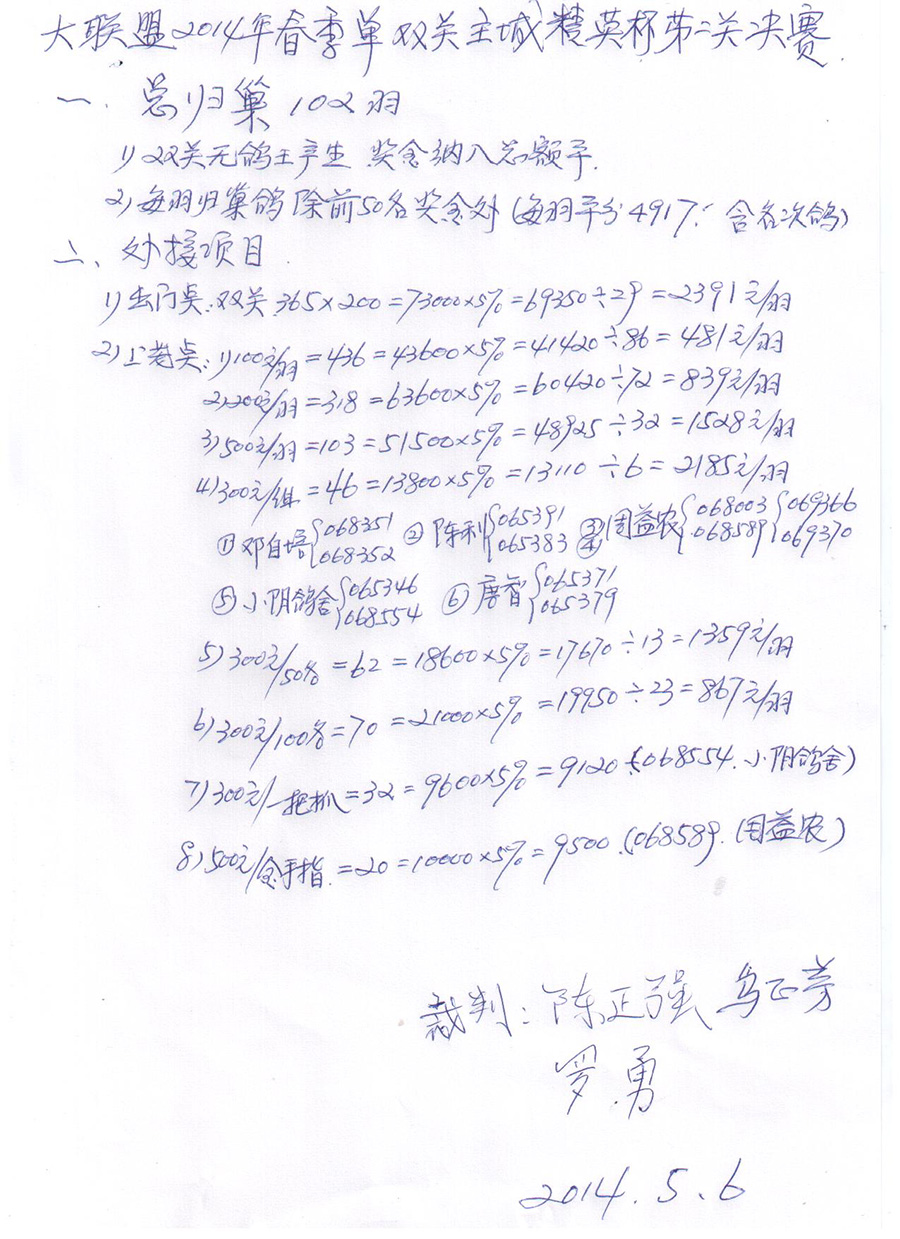 大联盟2014年春季单双关主城精英杯第二关决赛
一、总归巢102羽
1) 双关无鸽王产生 奖金纳入总额予.
2) 每羽归巢鸽除前50名奖金外(每羽平分4917.- 含名次鸽)
二、外接项目
1) 出门桌:双关365×200=73000×5%=69350÷29=2391元/羽
2) 上笼桌:1)100元/羽=436=43600×5%=41420÷86=481元/羽
2)200元/羽=318=63600×5%=60420÷72=839元/羽
3)500元/羽=103=51500×5%=48925÷32=1528元/羽
4)300元/组=46=13800×5%=13110÷6=2185元/羽
①邓自培{068351 068352 ②陈利{065391 065383 ③④周益农{068003 068589{069366 069370
⑤小阴鸽舍{065346 068554 ⑥唐智{065371 065379
5)300元/50名=62=18600×5%=17670÷13=1359元/羽
6)300元/100名=70=21000×5%=19950÷23=867元/羽
7)300元/一把抓=32=9600×5%=9120(068554.小阴鸽舍)
8)500元/金手指.=20=10000×5%=9500.(068589.(周益农)
裁判:陈正强 乌正芳
罗勇
2014.5.6